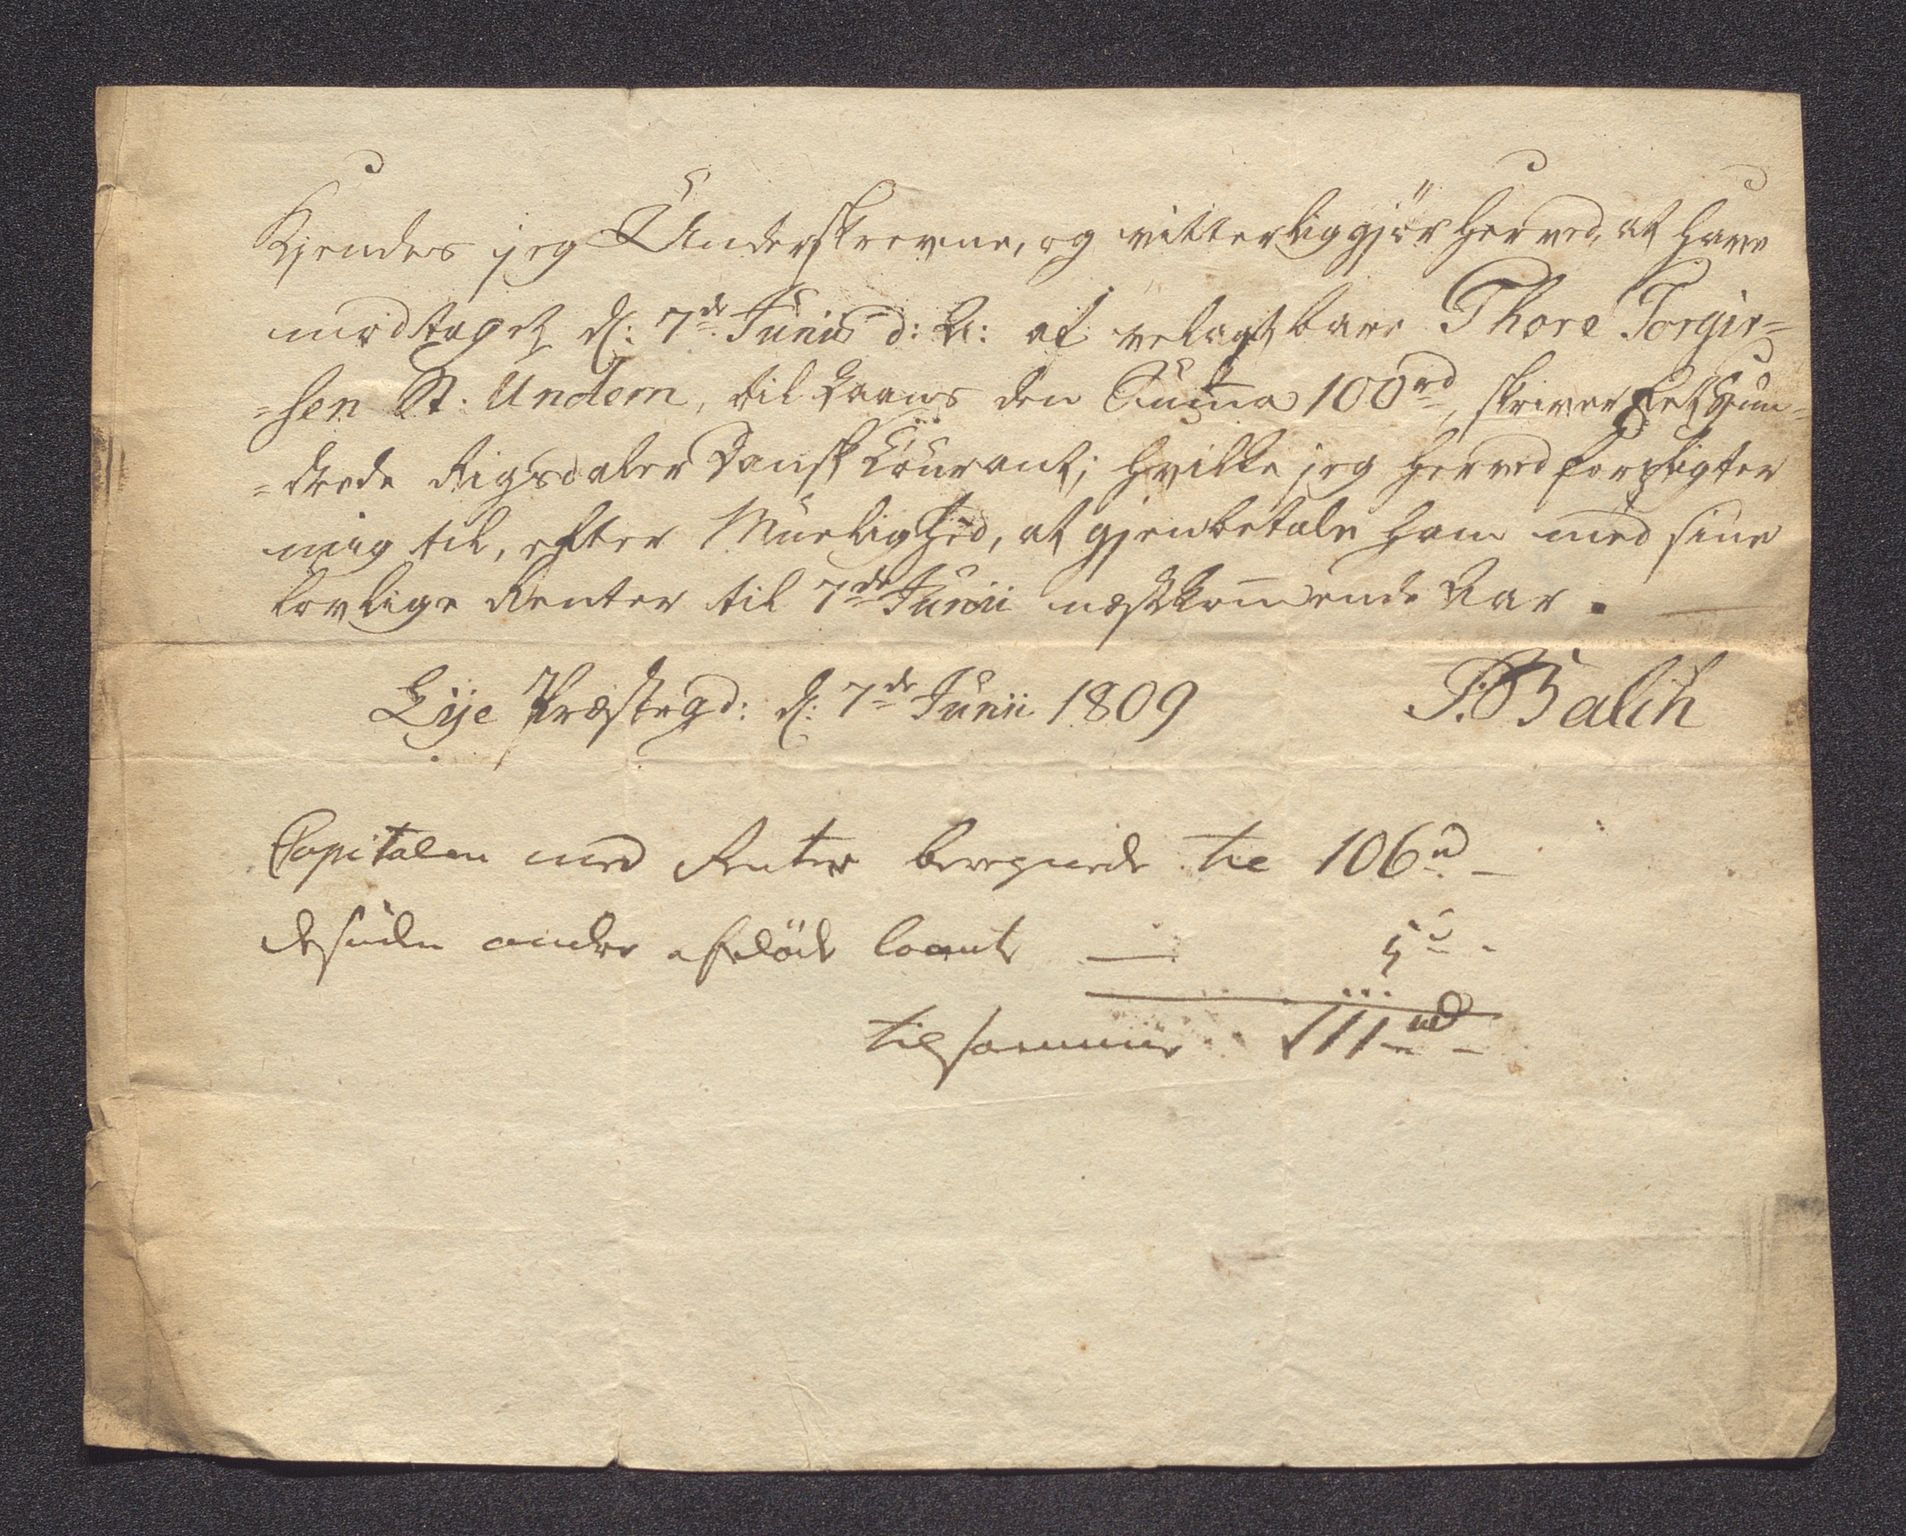 Kjendes jeg Underskrevne, og vitterliggjør herved, at have
modtaget d: 7de Junii d: A: af velagtbare Thore Torgir=
=sen St. Undem, til Laans den Summa 100rd, skriver Eet Hun=
=drede Rigsdaler Dansk Courant; hvilke jeg herved forpligter
mig til, efter Muelighed, at gjenbetale ham med sine
lovlige Renter til 7de Junii næstkommende Aar.
Lÿe Præstegd: d: 7de Junii 1809 J: Balch
Capitalen med Renter beregnede til 106rd –
desuden andre laante – 5rd -
tilsammen 111rd –